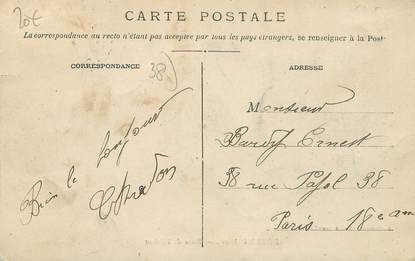 20€
CARTE POSTALE
La correspondance au recto n'étant pas acceptée par tous les pays étrangers, se renseigner à la Post
CORRESPONDANCE
38)
ADRESSE
Bien le bonjour
Monsieur
Bardy Ernest
38 rue Pajol 38
Paris 18e am